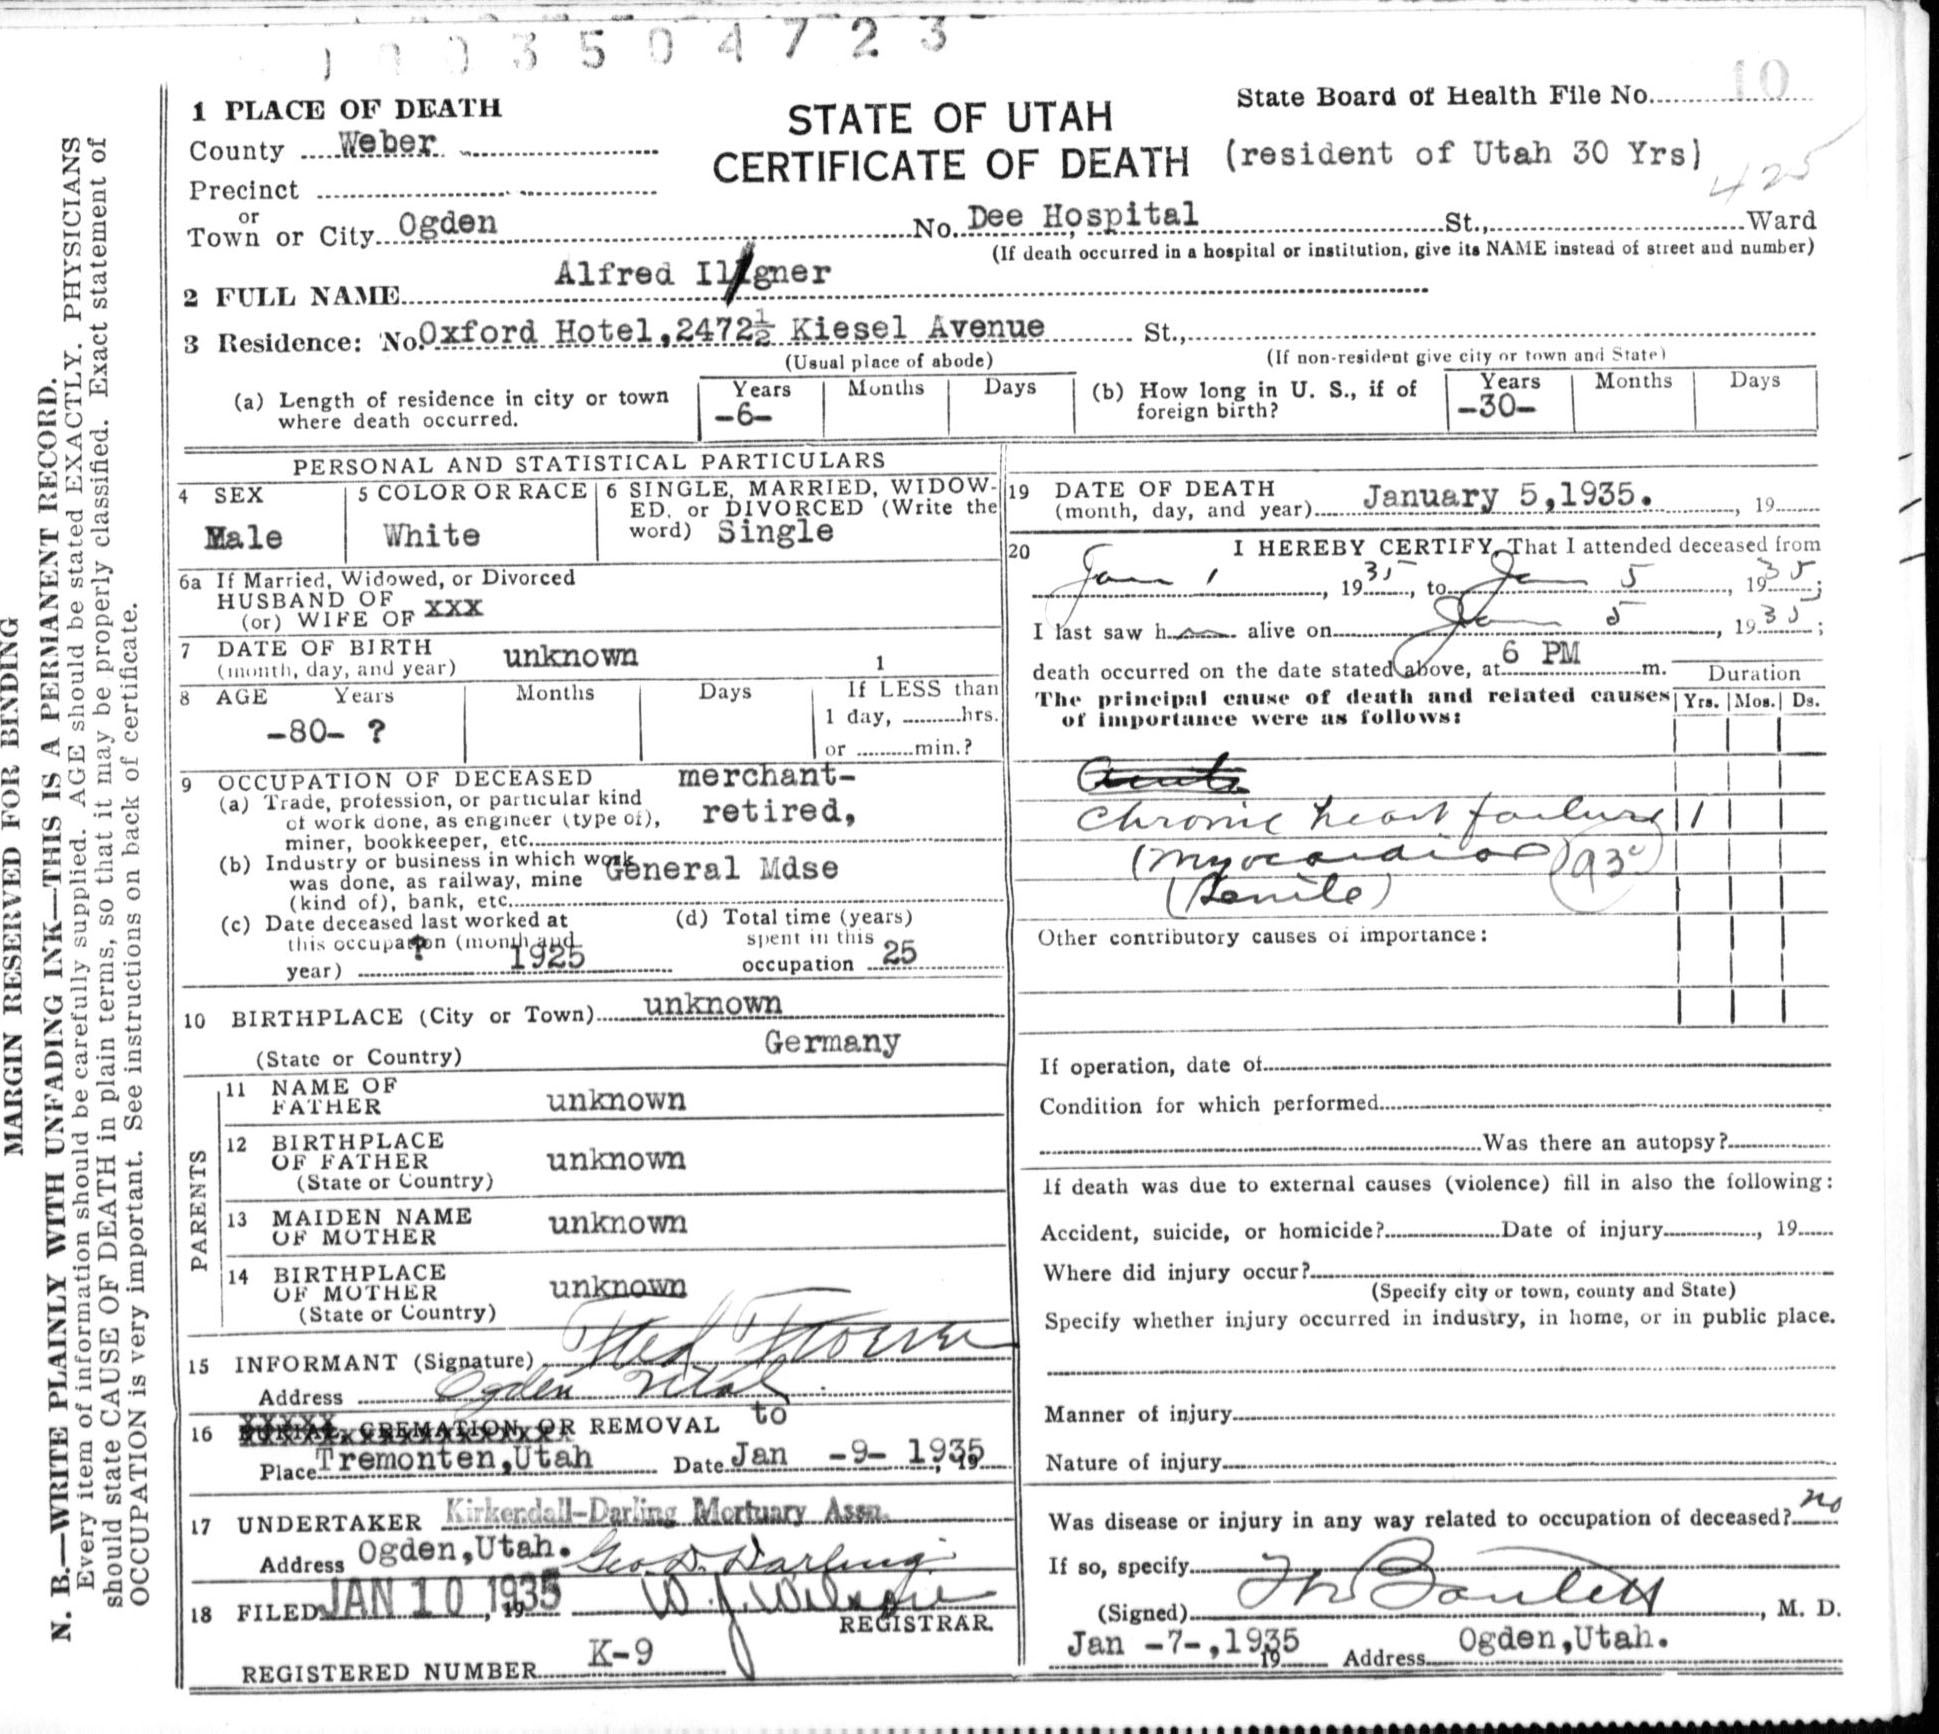 1003504723
1 PLACE OF DEATH
County Weber
Precinct
or
Town or City Ogden
STATE OF UTAH
CERTIFICATE OF DEATH
State Board of Health File No. 10
(resident of Utah 30 Yrs)
425
No. Dee Hospital St., Ward
(If death occurred in a hospital or institution, give its NAME instead of street and number)
2 FULL NAME Alfred Illgner
3 Residence: No. Oxford Hotel, 2472½ Kiesel Avenue St.,
(Usual place of abode) (If non-resident give city or town and State)
(a) Length of residence in city or town where death occurred. Years -6- Months Days
(b) How long in U. S., if of foreign birth? Years -30- Months Days
PERSONAL AND STATISTICAL PARTICULARS
4 SEX
Male
5 COLOR OR RACE
White
6 SINGLE, MARRIED, WIDOW-
ED, or DIVORCED (Write the
word) Single
6a If Married, Widowed, or Divorced
HUSBAND OF
(or) WIFE OF xxx
7 DATE OF BIRTH
(month, day, and year) unknown 1
8 AGE Years Months Days If LESS than
-80- ? 1 day, hrs.
or min.?
9 OCCUPATION OF DECEASED merchant-
(a) Trade, profession, or particular kind
of work done, as engineer (type of), retired,
miner, bookkeeper, etc.
(b) Industry or business in which work
was done, as railway, mine General Mdse
(kind of), bank, etc.
(c) Date deceased last worked at
this occupation (month and
year) ? 1925
(d) Total time (years)
spent in this
occupation 25
10 BIRTHPLACE (City or Town) unknown
(State or Country) Germany
PARENTS
11 NAME OF
FATHER unknown
12 BIRTHPLACE
OF FATHER unknown
(State or Country)
13 MAIDEN NAME
OF MOTHER unknown
14 BIRTHPLACE
OF MOTHER unknown
(State or Country)
15 INFORMANT (Signature)
Address Ogden Utah
16 BURIAL, CREMATION OR REMOVAL to
Place Tremonten, Utah Date Jan -9- 1935 19
17 UNDERTAKER Kirkendall-Darling Mortuary Assn.
Address Ogden, Utah. Geo. D. Darling
18 FILED JAN 10 1935, 19
REGISTRAR.
REGISTERED NUMBER K-9
19 DATE OF DEATH
(month, day, and year) January 5, 1935. , 19
20 I HEREBY CERTIFY, That I attended deceased from
Jan 1, 1935, to Jan 5, 1935;
I last saw h alive on Jan 5, 1935;
death occurred on the date stated above, at 6 PM m.
Duration
The principal cause of death and related causes
of importance were as follows:
Yrs. Mos. Ds.
Acute
Chronic heart failure 1
(Myocardial) 93c
(Senile)
Other contributory causes of importance:
If operation, date of
Condition for which performed
Was there an autopsy?
If death was due to external causes (violence) fill in also the following:
Accident, suicide, or homicide? Date of injury , 19
Where did injury occur?
(Specify city or town, county and State)
Specify whether injury occurred in industry, in home, or in public place.
Manner of injury
Nature of injury
Was disease or injury in any way related to occupation of deceased? no
If so, specify
(Signed) , M. D.
Jan -7-, 1935 19 Address Ogden, Utah.
MARGIN RESERVED FOR BINDING
N. B.—WRITE PLAINLY WITH UNFADING INK—THIS IS A PERMANENT RECORD.
Every item of information should be carefully supplied. AGE should be stated EXACTLY. PHYSICIANS
should state CAUSE OF DEATH in plain terms, so that it may be properly classified. Exact statement of
OCCUPATION is very important. See instructions on back of certificate.